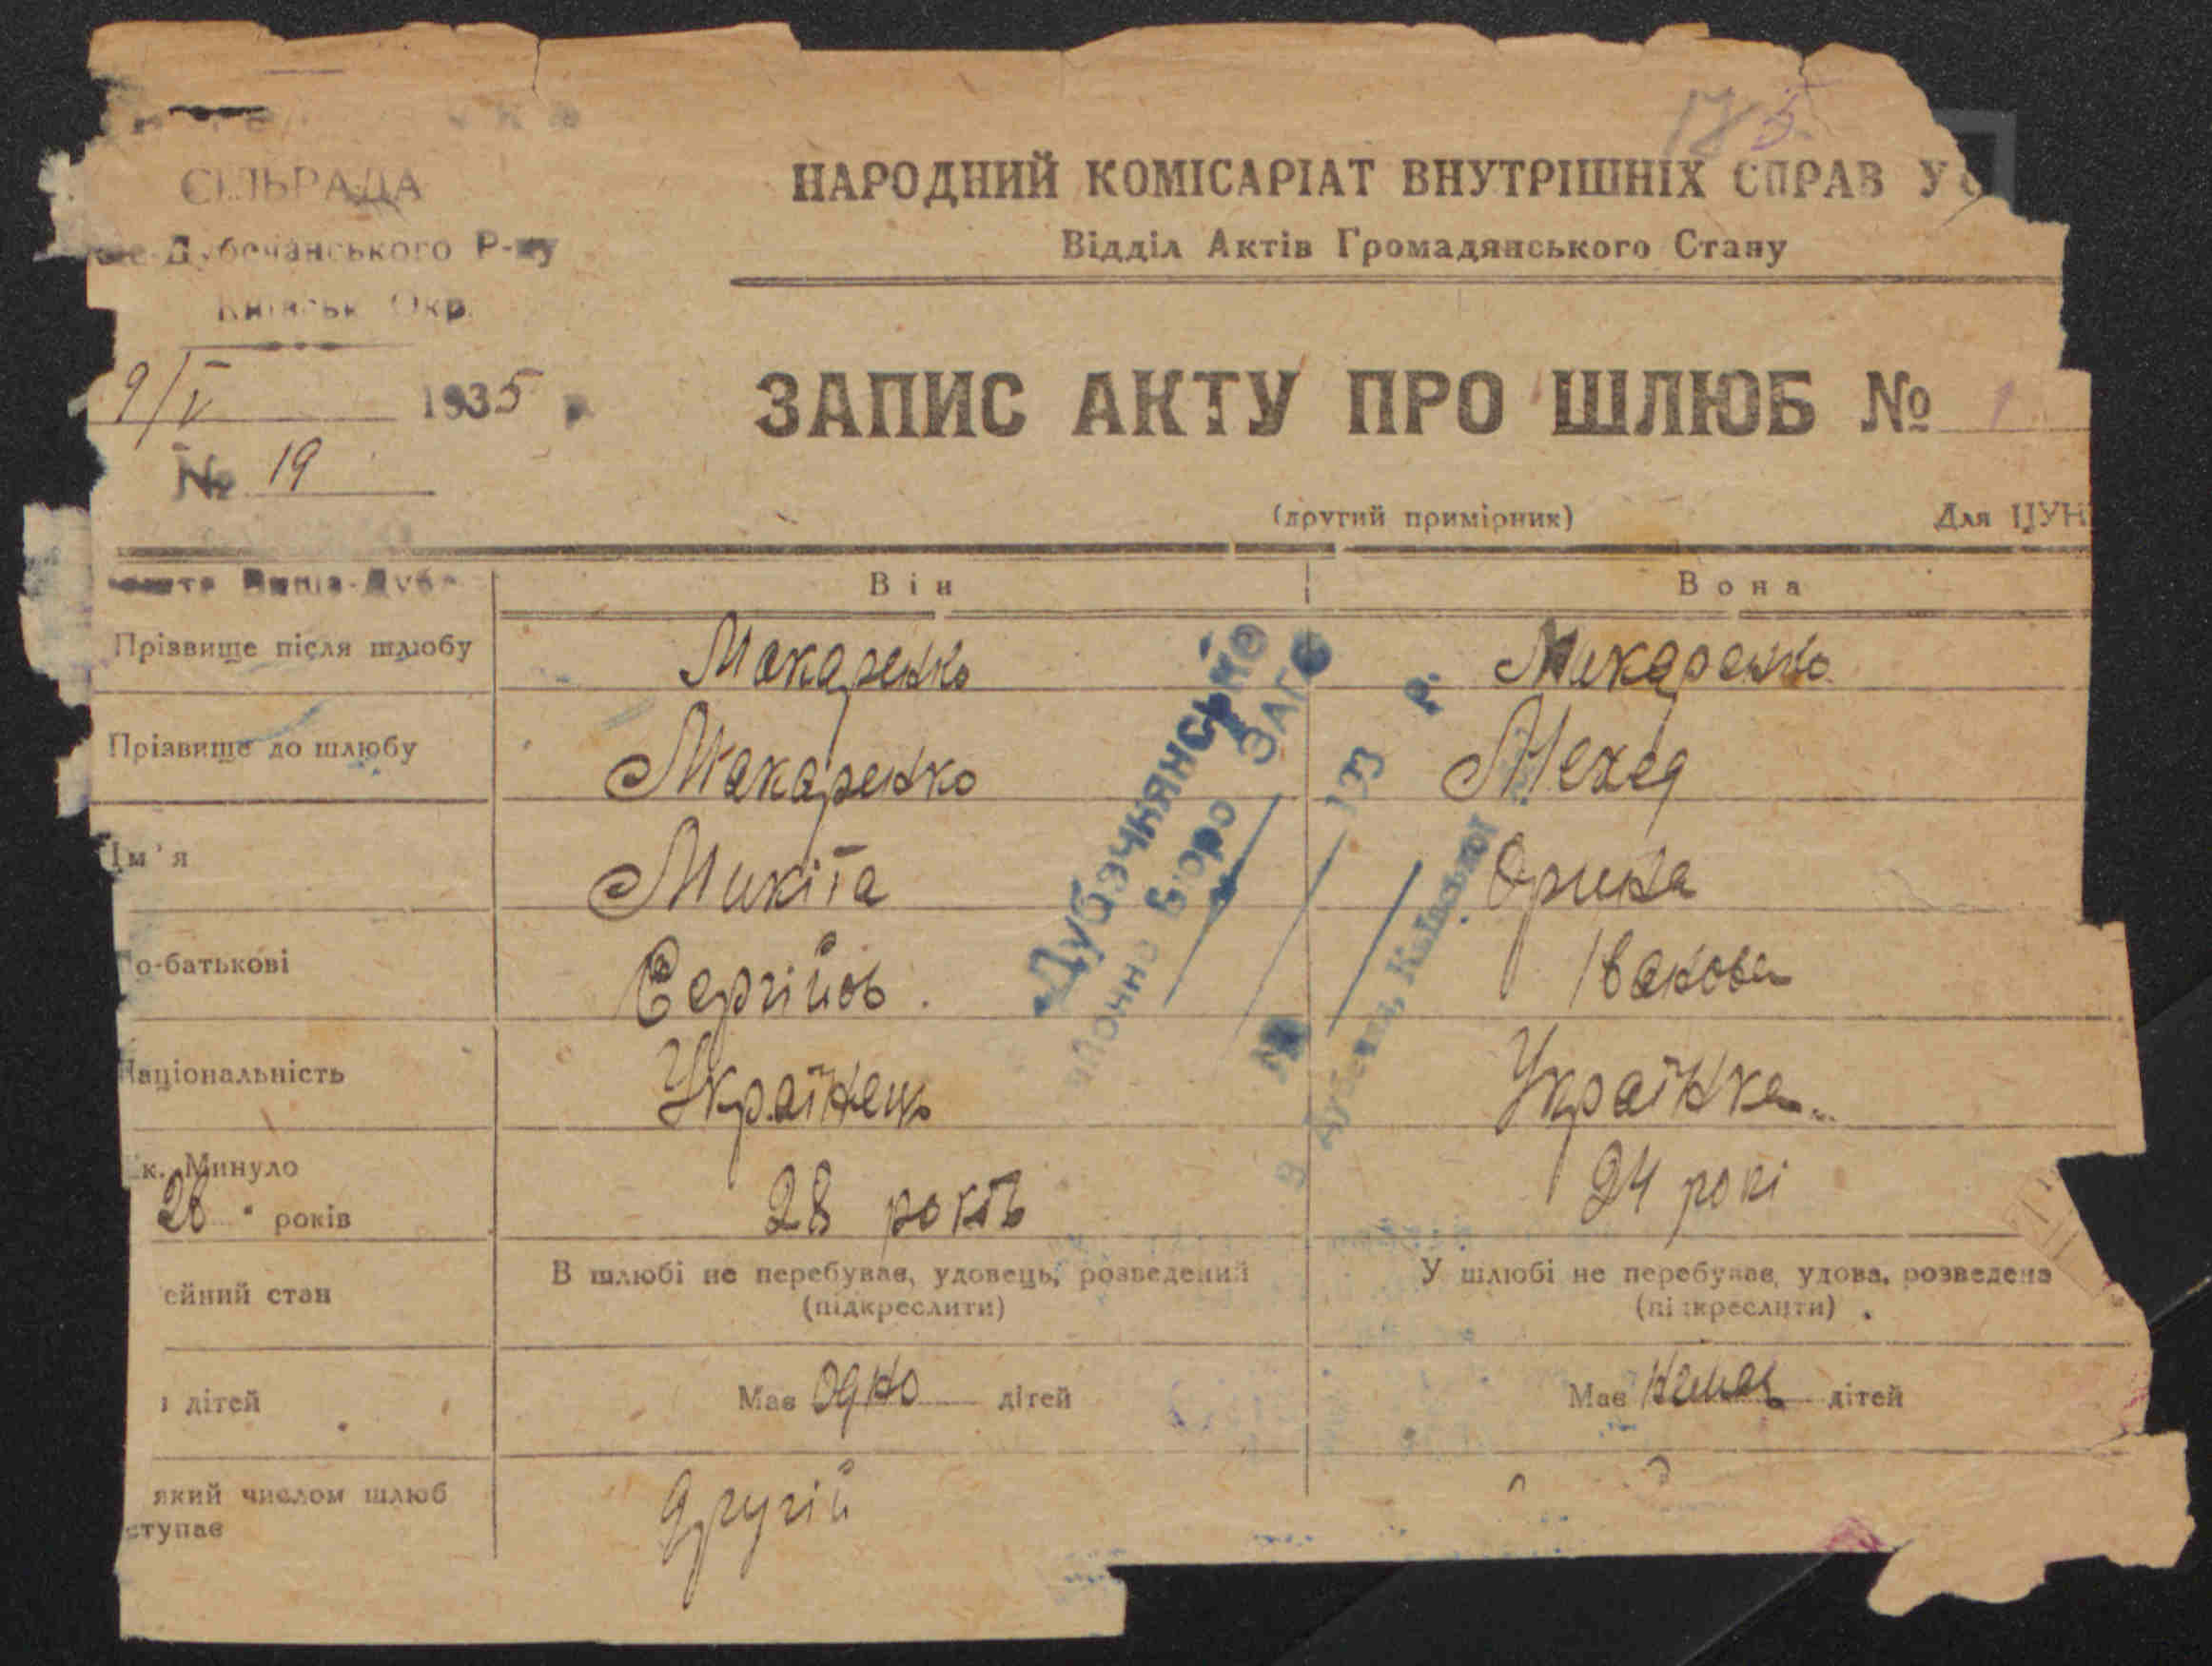 175.
СІЛЬРАДА
Дубечанського Р-ну
Київськ Окр.
9/V 1935 р
№ 19
НАРОДНИЙ КОМІСАРІАТ ВНУТРІШНІХ СПРАВ УС
Відділ Актів Громадянського Стану
ЗАПИС АКТУ ПРО ШЛЮБ № 1
(другий примірник) Для ЦУН
Він Вона
Прізвище після шлюбу Макаренко Макаренко
Прізвище до шлюбу Макаренко Мехед
Ім'я Микіта Орина
о-батькові Сергійов. Іванова
Національність Українець Українка
к. Минуло
28 років 28 років 24 рокі
ейний стан В шлюбі не перебував, удовець, розведений У шлюбі не перебував, удова, розведена
(підкреслити) (підкреслити)
дітей Має одно дітей Має немає дітей
який числом шлюб Другій
ступає
Дубечнянське
Бюро ЗАГС
193 р.
№
Київської